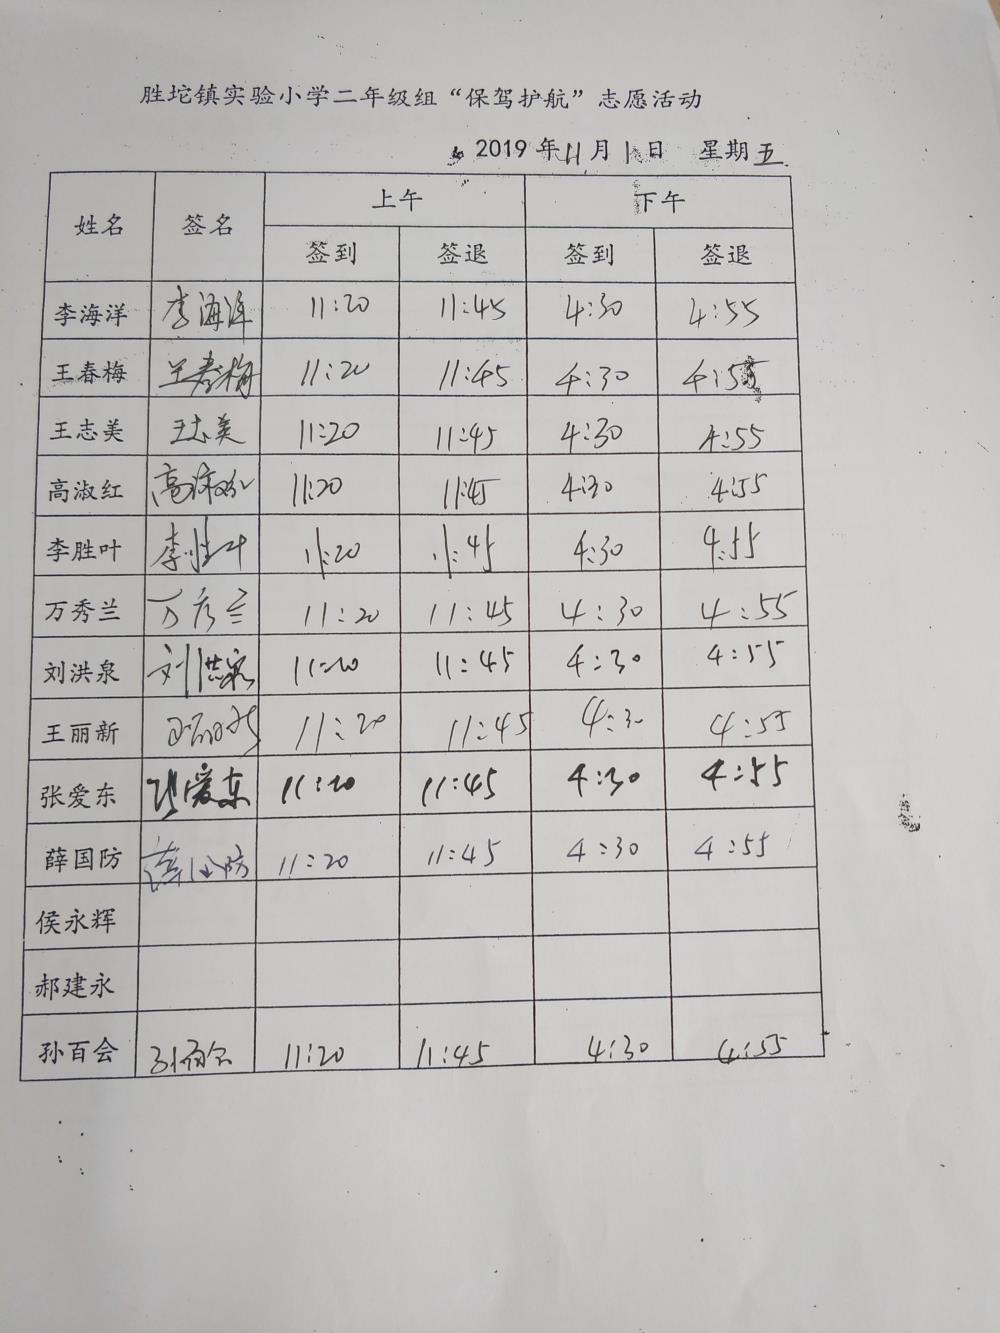 胜坨镇实验小学二年级组“保驾护航”志愿活动
2019年11月1日 星期五
姓名 签名 上午 下午
签到 签退 签到 签退
李海洋 李海洋 11:20 11:45 4:30 4:55
王春梅 王春梅 11:20 11:45 4:30 4:55
王志美 王志美 11:20 11:45 4:30 4:55
高淑红 高淑红 11:20 11:45 4:30 4:55
李胜叶 李胜叶 11:20 11:45 4:30 4:55
万秀兰 万秀兰 11:20 11:45 4:30 4:55
刘洪泉 刘洪泉 11:20 11:45 4:30 4:55
王丽新 王丽新 11:20 11:45 4:30 4:55
张爱东 张爱东 11:20 11:45 4:30 4:55
薛国防 薛国防 11:20 11:45 4:30 4:55
侯永辉
郝建永
孙百会 孙百会 11:20 11:45 4:30 4:55